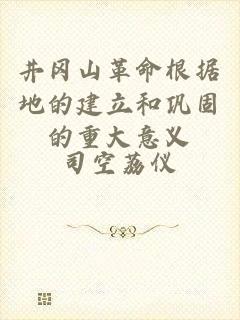 井冈山革命根据
地的建立和巩固
的重大意义
司空荔仪